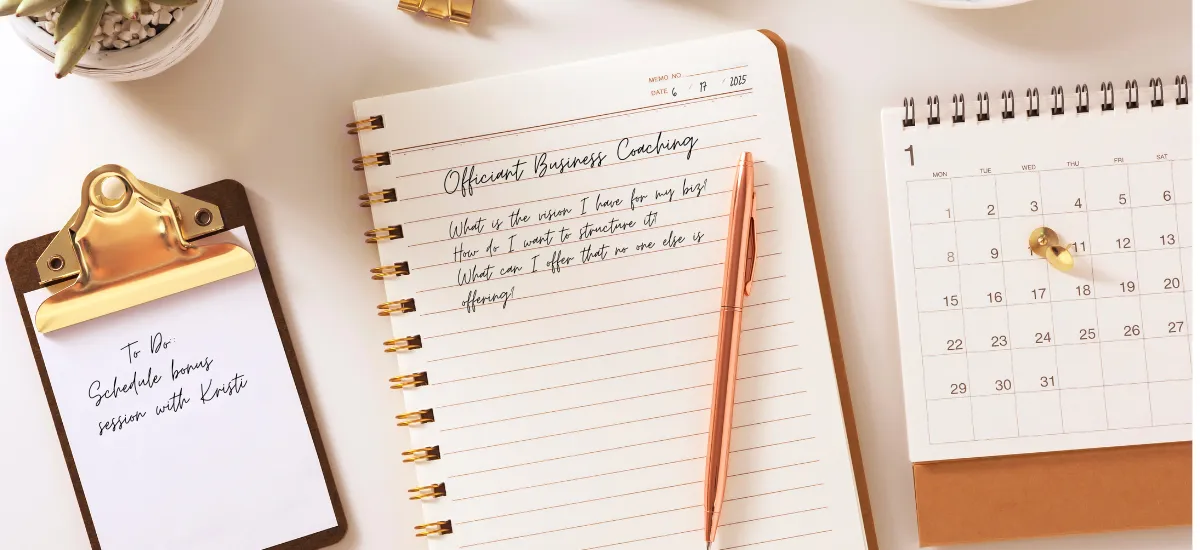 To Do:
Schedule bonus
session with Kristi
MEMO NO.
DATE 6 / 17 / 2025
Officiant Business Coaching
What is the vision I have for my biz?
How do I want to structure it?
What can I offer that no one else is
offering?
1
MON TUE WED THU FRI SAT
1 2 3 4 5 6
8 9 11 12 13
15 16 17 18 19 20
22 23 24 25 26 27
29 30 31